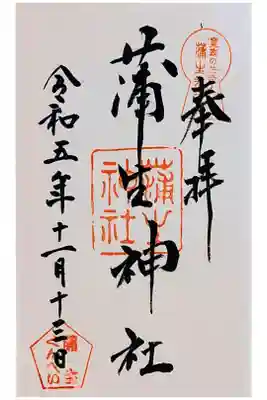 奉拝
蒲生神社
蒲生神社
令和五年十一月十三日